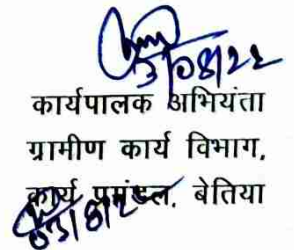 3/08/22
कार्यपालक अभियंता
ग्रामीण कार्य विभाग,
कार्य प्रमंडल, बेतिया
03/8/2